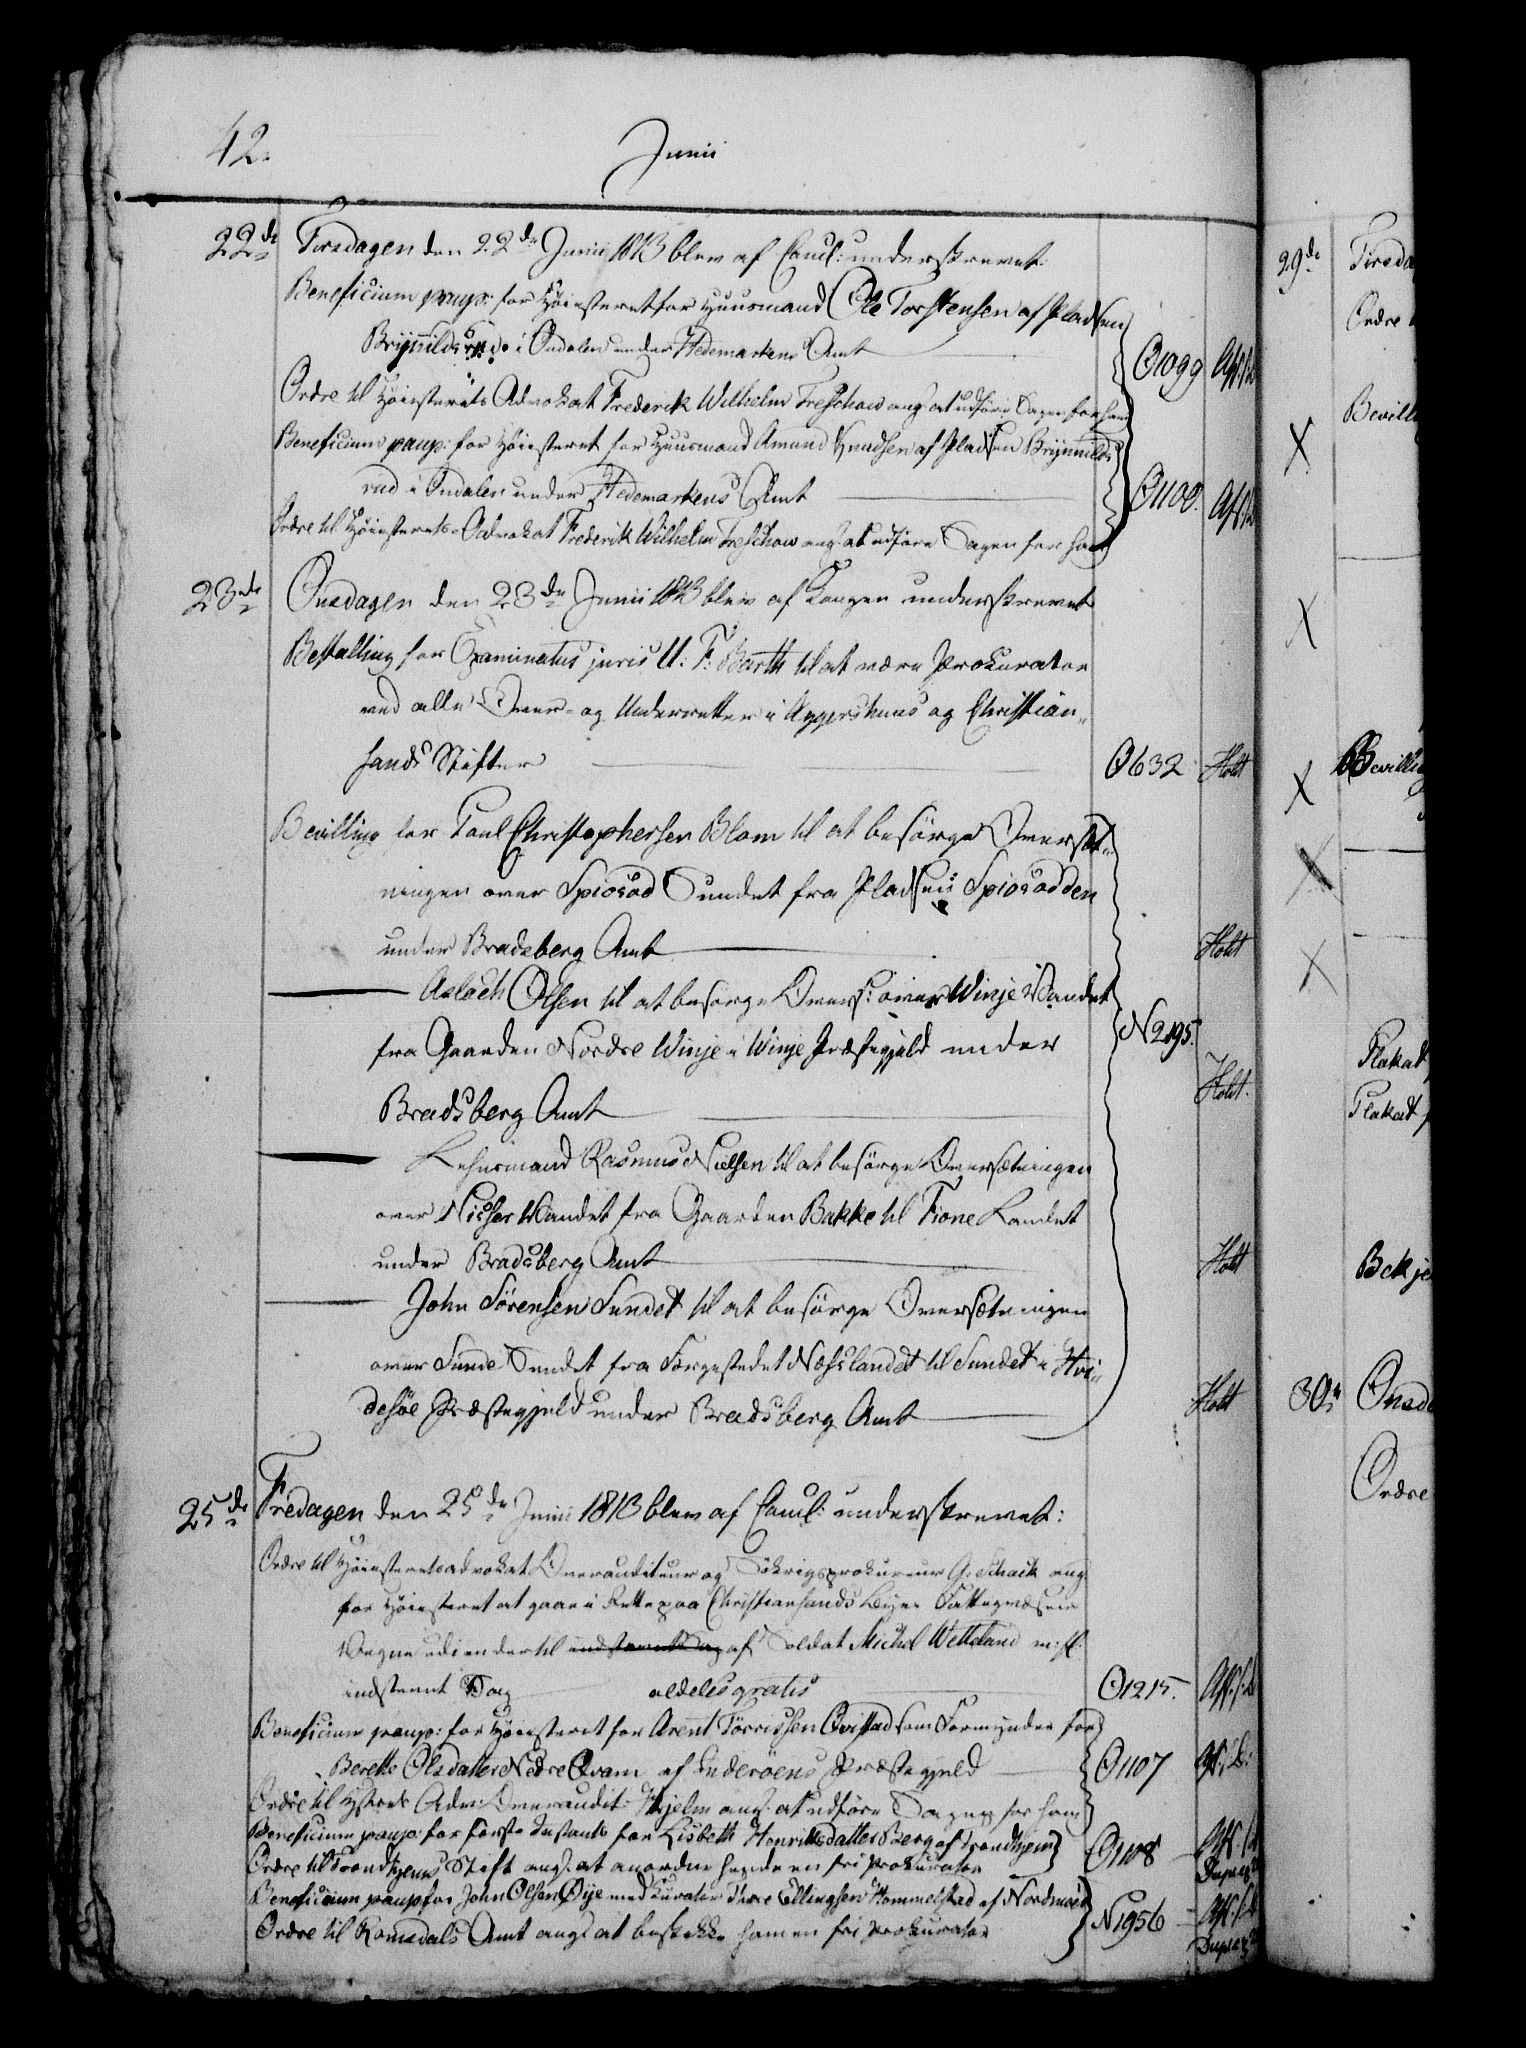 42.
Junii
22de Tirsdagen den 22de Junii 1813 blev af Cancl: underskrevet.
Beneficium paup: for Høiesteret for Huusmand Ole Torstensen af Pladsen
Brynildsrud i Ondalen under Hedemarkens Amt
O1099
Ordre til Høiesterets Advokat Frederik Wilhelm Treschow ang. at udføre Sagen for ham
Beneficium paup: for Høiesteret for Huusmand Amund Knudsen af Pladsen Brynnilds
rud i Ondalen under Hedemarkens Amt
O1100.
Ordre til Høiesterets-Advokat Frederik Wilhelm Treschow ang. at udføre Sagen for ham
23de Onsdagen den 23de Junii 1813 blev af Kongen underskrevet
Bestalling for Examinatus juris U: F: Barth til at være Prokurator
ved alle Over- og Underretter i Aggershuus og Christian„
sands Stifter O632 Holt
Bevilling for Poul Christophersen Blom til at besørge Oversæt„
ningen over Spiosød Sundet fra Pladsen Spiosødden
under Bradsberg Amt Holt
Aslach Olsen til at besørge Overs: over Winje Vandet
fra Gaarden Nordre Winje i Winje Præstegjeld under
N2195.
Bradsberg Amt Holt.
Lehnsmand Rasmus Nielsen til at besørge Oversætningen
over Nisser Vandet fra Gaarden Bakke til Fione Landet
under Bradsberg Amt Holt
John Sørensen Sundet til at besørge Oversætningen
over Sunde Sundet fra Færgestedet Næsslandet til Sundet i Hvi„
desøe Præstegjeld under Bradsberg Amt Holt
25de Fredagen den 25de Junii 1813 blev af Cancl: underskrevet:
Ordre til Høiesteretsadvokat Overauditeur og Søkrigsprokureur G. Schack ang
for Høiesteret at gaae i Rette paa Christiansands Byes Fattigvæsens
Vegne udi en der til indstevnt Sag af Soldat Michel Wetteland m: fl:
indstevnt Sag aldeles gratis O1215.
Beneficium paup: for Høiesteret for Arent Torrissen Qvistad som Formynder for
Berette Olsdatter Nedre Qvam af Inderøens Præstegjeld O1107
Ordre til Hstrets Adv: Overaudit: Hjelm ang. at udføre Sagen for ham
Beneficium paup: for første Instants for Lisbeth Henriksdatter Berg af Trondhjem
O1108
Ordre til Trondhjems Stift ang. at anordne hende en fri Prokurator
Beneficium paup for John Olsen Øye med Kurator Thore Ellingsen Hommelstad af Nordmøer
N1956
Ordre til Romsdals Amt ang. at beskikke ham en fri Prokurator
29de
Ordre
Plakat
Plakat
30te
Ordre